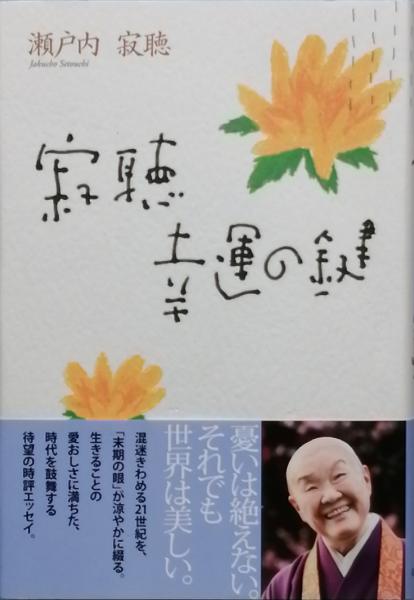 瀬戸内 寂聴
Jakucho Setouchi
寂聴
幸運の鍵
憂いは絶えない。
それでも
世界は美しい。
混迷きわめる21世紀を、
「末期の眼」が涼やかに綴る。
生きることの
愛おしさに満ちた、
時代を鼓舞する
待望の時評エッセイ。